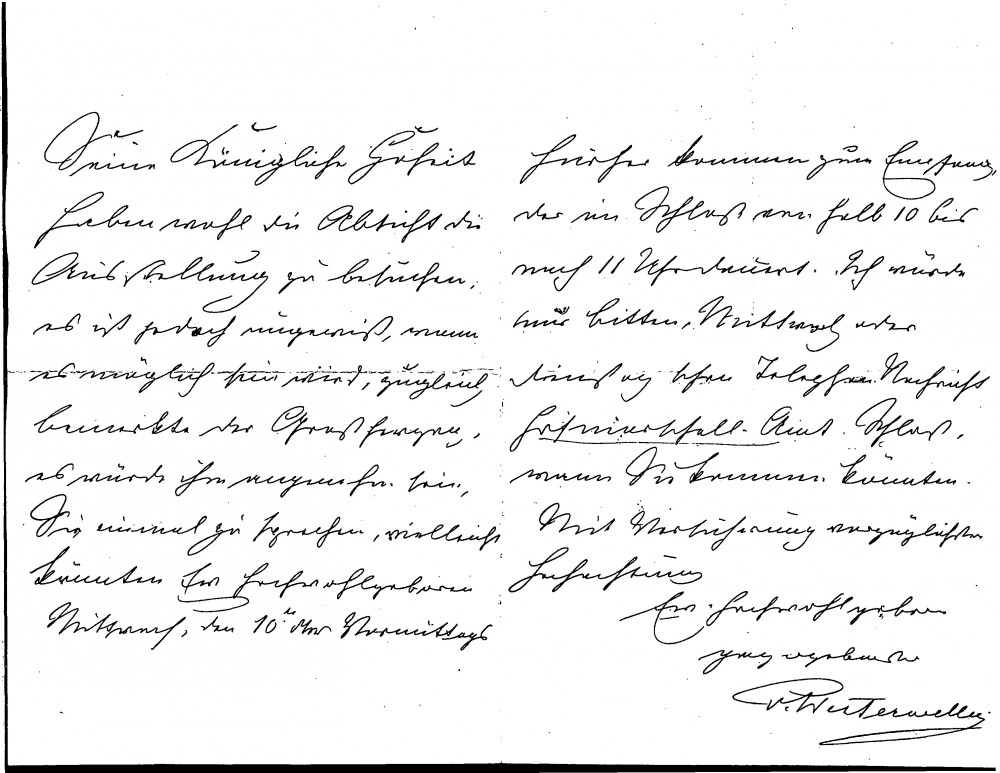 Seine Königliche Hoheit
haben wohl die Absicht die
Ausstellung zu besuchen,
es ist jedoch ungewiß, wann
es möglich sein wird, zugleich
bemerkte der Großherzog,
es würde ihm angenehm sein,
Sie einmal zu sprechen, vielleicht
könnten Ew Hochwohlgeboren
Mittwoch, den 10ten dss Vormittags
hierher kommen zum Empfang,
der im Schloß von halb 10 bis
nach 11 Uhr dauert. Ich würde
nur bitten, Mittwoch oder
Dienstag schon Telephon Nachricht
Hofmarschall-Amt. Schloß,
wann Sie kommen könnten.
Mit Versicherung vorzüglichster
Hochachtung
Ew. Hochwohlgeboren
ganz ergebenster